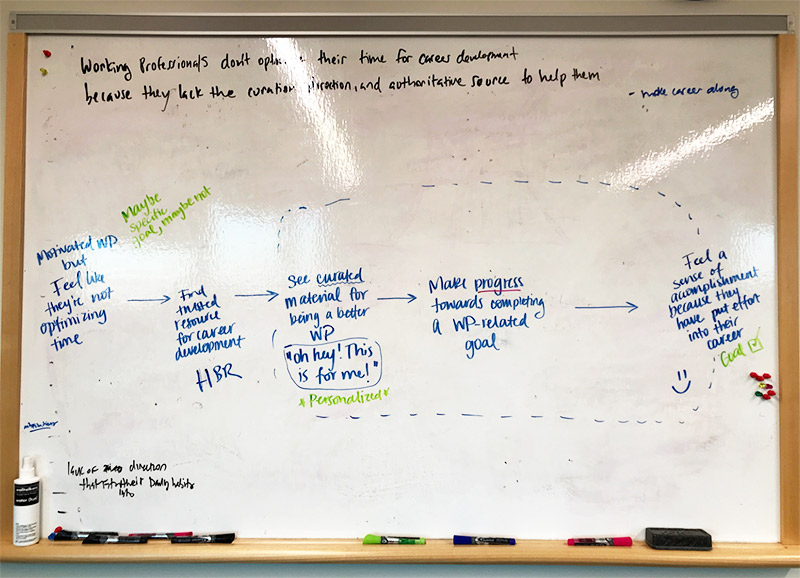 Working Professionals don't their time for career development
because they lack the curation, direction, and authoritative source to help them
- make career along
Maybe
specific
goal, maybe not
Motivated WP
but
Feel like
they're not
optimizing
time
Find
trusted
resource
for career
development
HBR
See curated
material for
being a better
WP
"oh hey! This
is for me!"
*Personalized*
Make progress
towards completing
a WP-related
goal
Feel a
sense of
accomplishment
because they
have put effort
into their
career
Goal ☑
lack of direction
that their Daily habits
into